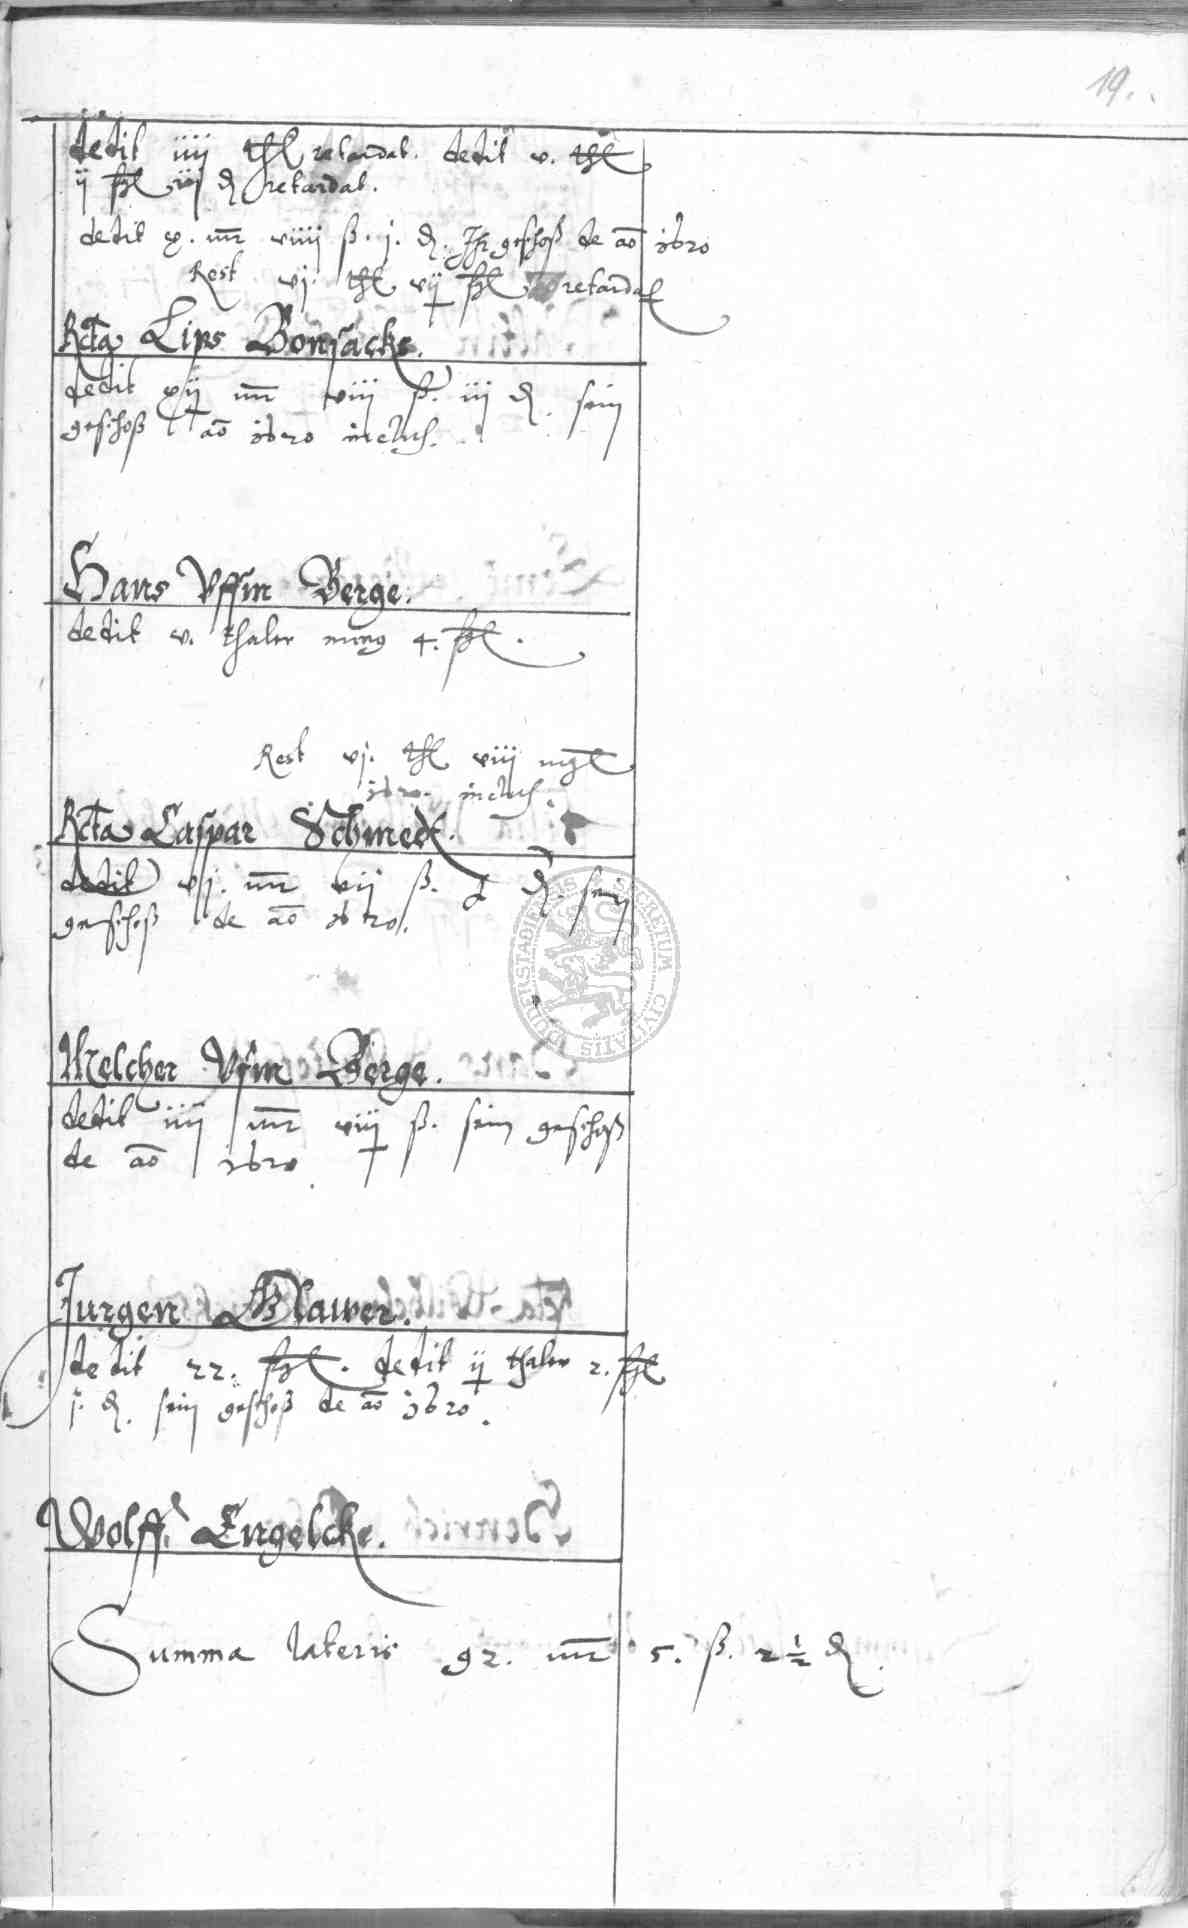 19.
dedit iiij thl retardat. dedit v. thl
ij ßl iij d retardat.
dedit x. mr viiij ß. j. d. Ihr geschoß de ao 1620
Rest vj. thl vij ßl retardat
Rcta Lips Bonsacks.
dedit xij mr viii ß. iii d. sein
geschoß ao 1620 inclus.
Hans Vffm Berge.
dedit v. thaler 4. ßl.
Rest vj. thl viii mgl
1620. inclus.
Rcta Caspar Schmedt.
dedit vj. mr vij ß. d. sein
geschoß de ao 1620.
Melcher Vfm Berge.
dedit iiij mr viij ß. sein geschoß
de ao 1620.
Jurgen Blawer.
dedit 22. ßl. dedit ij thaler 2. ßl
j. d. sein geschoß de ao 1620.
Wolff Engelcke.
Summa lateris 92. mr 5. ß. 2 1/2 d.
SECRETUM CIVITATIS DUDERSTADIENSIS